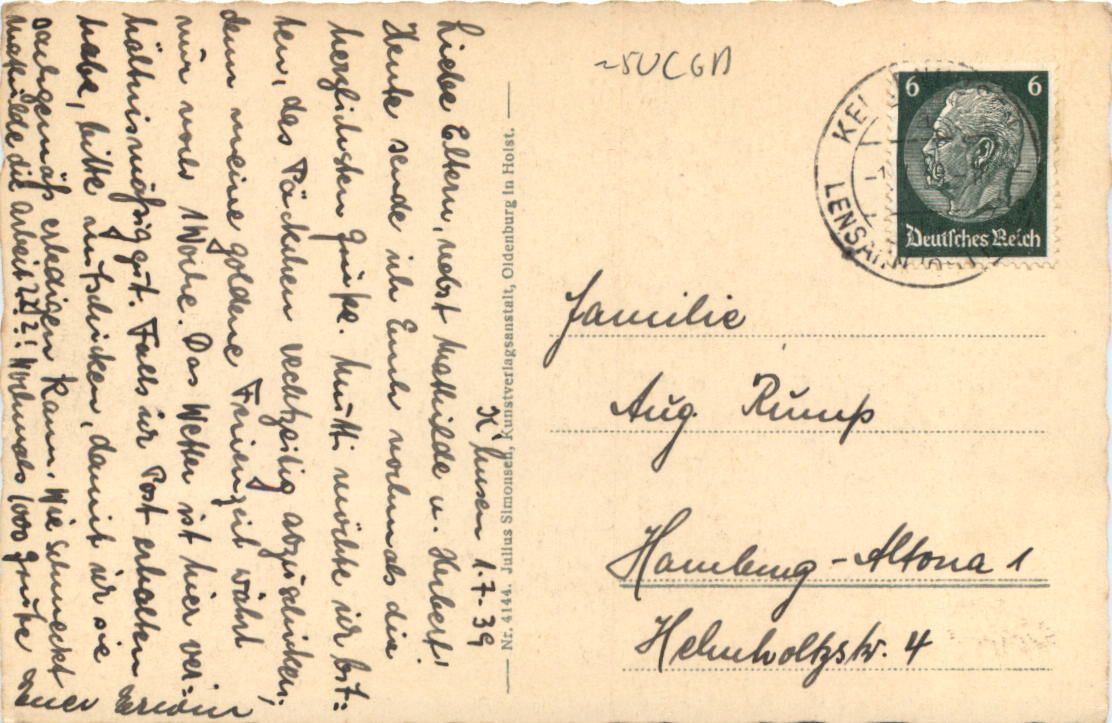 K'husen 1.7.39
Liebe Eltern, nebst Mathilde u. Herbert!
Heute sende ich Euch nochmals die
herzlichsten Grüße. Mutti möchte ich bit-
ten, das Päckchen rechtzeitig abzuschicken,
denn meine goldene Ferienzeit währt
nur noch 1 Woche. Das Wetter ist hier ver-
hältnismäßig gut. Falls ich Post erhalten
habe, bitte aufschicken, damit ich sie
sachgemäß erledigen kann. Wie schmeckt
Mathilde die Arbeit??! Nochmals 1000 Grüße
Euer Erwin
Nr. 4144. Julius Simonsen, Kunstverlagsanstalt, Oldenburg in Holst.
LENSAHN
6 6
Deutsches Reich
Familie
Aug. Rump
Hamburg-Altona 1
Helmholtzstr. 4